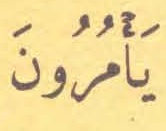 يَأْمُرُونَ